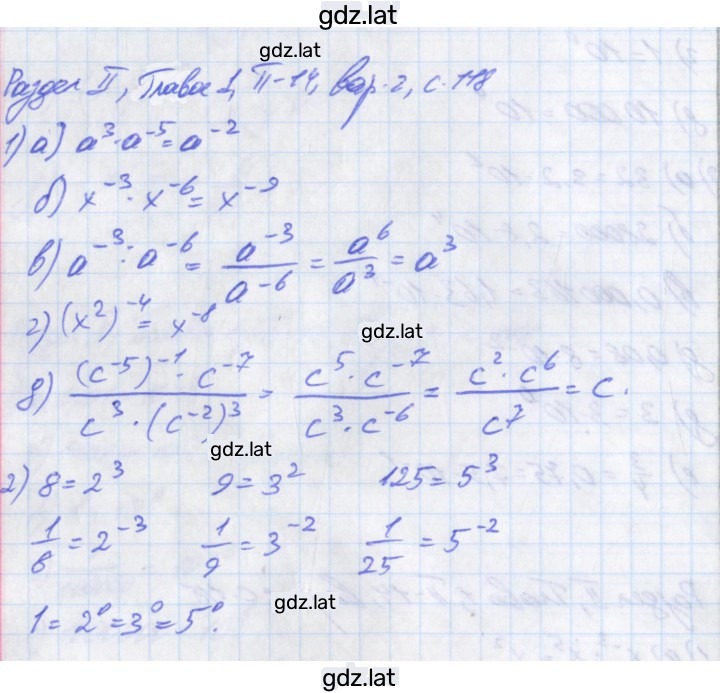 gdz.lat
gdz.lat
Раздел II, Глава 1, П-14, вар. 2, с. 118
1) а) a³·a⁻⁵=a⁻²
б) x⁻³·x⁻⁶=x⁻⁹
в) a⁻³:a⁻⁶= a⁻³/a⁻⁶ = a⁶/a³ = a³
г) (x²)⁻⁴=x⁻⁸
gdz.lat
д) (c⁻⁵)⁻¹·c⁻⁷/c³·(c⁻²)³ = c⁵·c⁻⁷/c³·c⁻⁶ = c²·c⁶/c⁷ = c.
gdz.lat
2) 8=2³ 9=3² 125=5³
1/8=2⁻³ 1/9=3⁻² 1/25=5⁻²
gdz.lat
1=2⁰=3⁰=5⁰.
gdz.lat